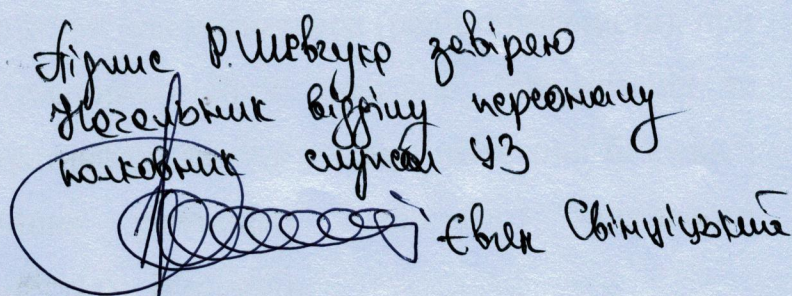 Підпис Р. Шевчука завіряю
Начальник відділу персоналу
полковник служби ЦЗ
Євген Свінціцький